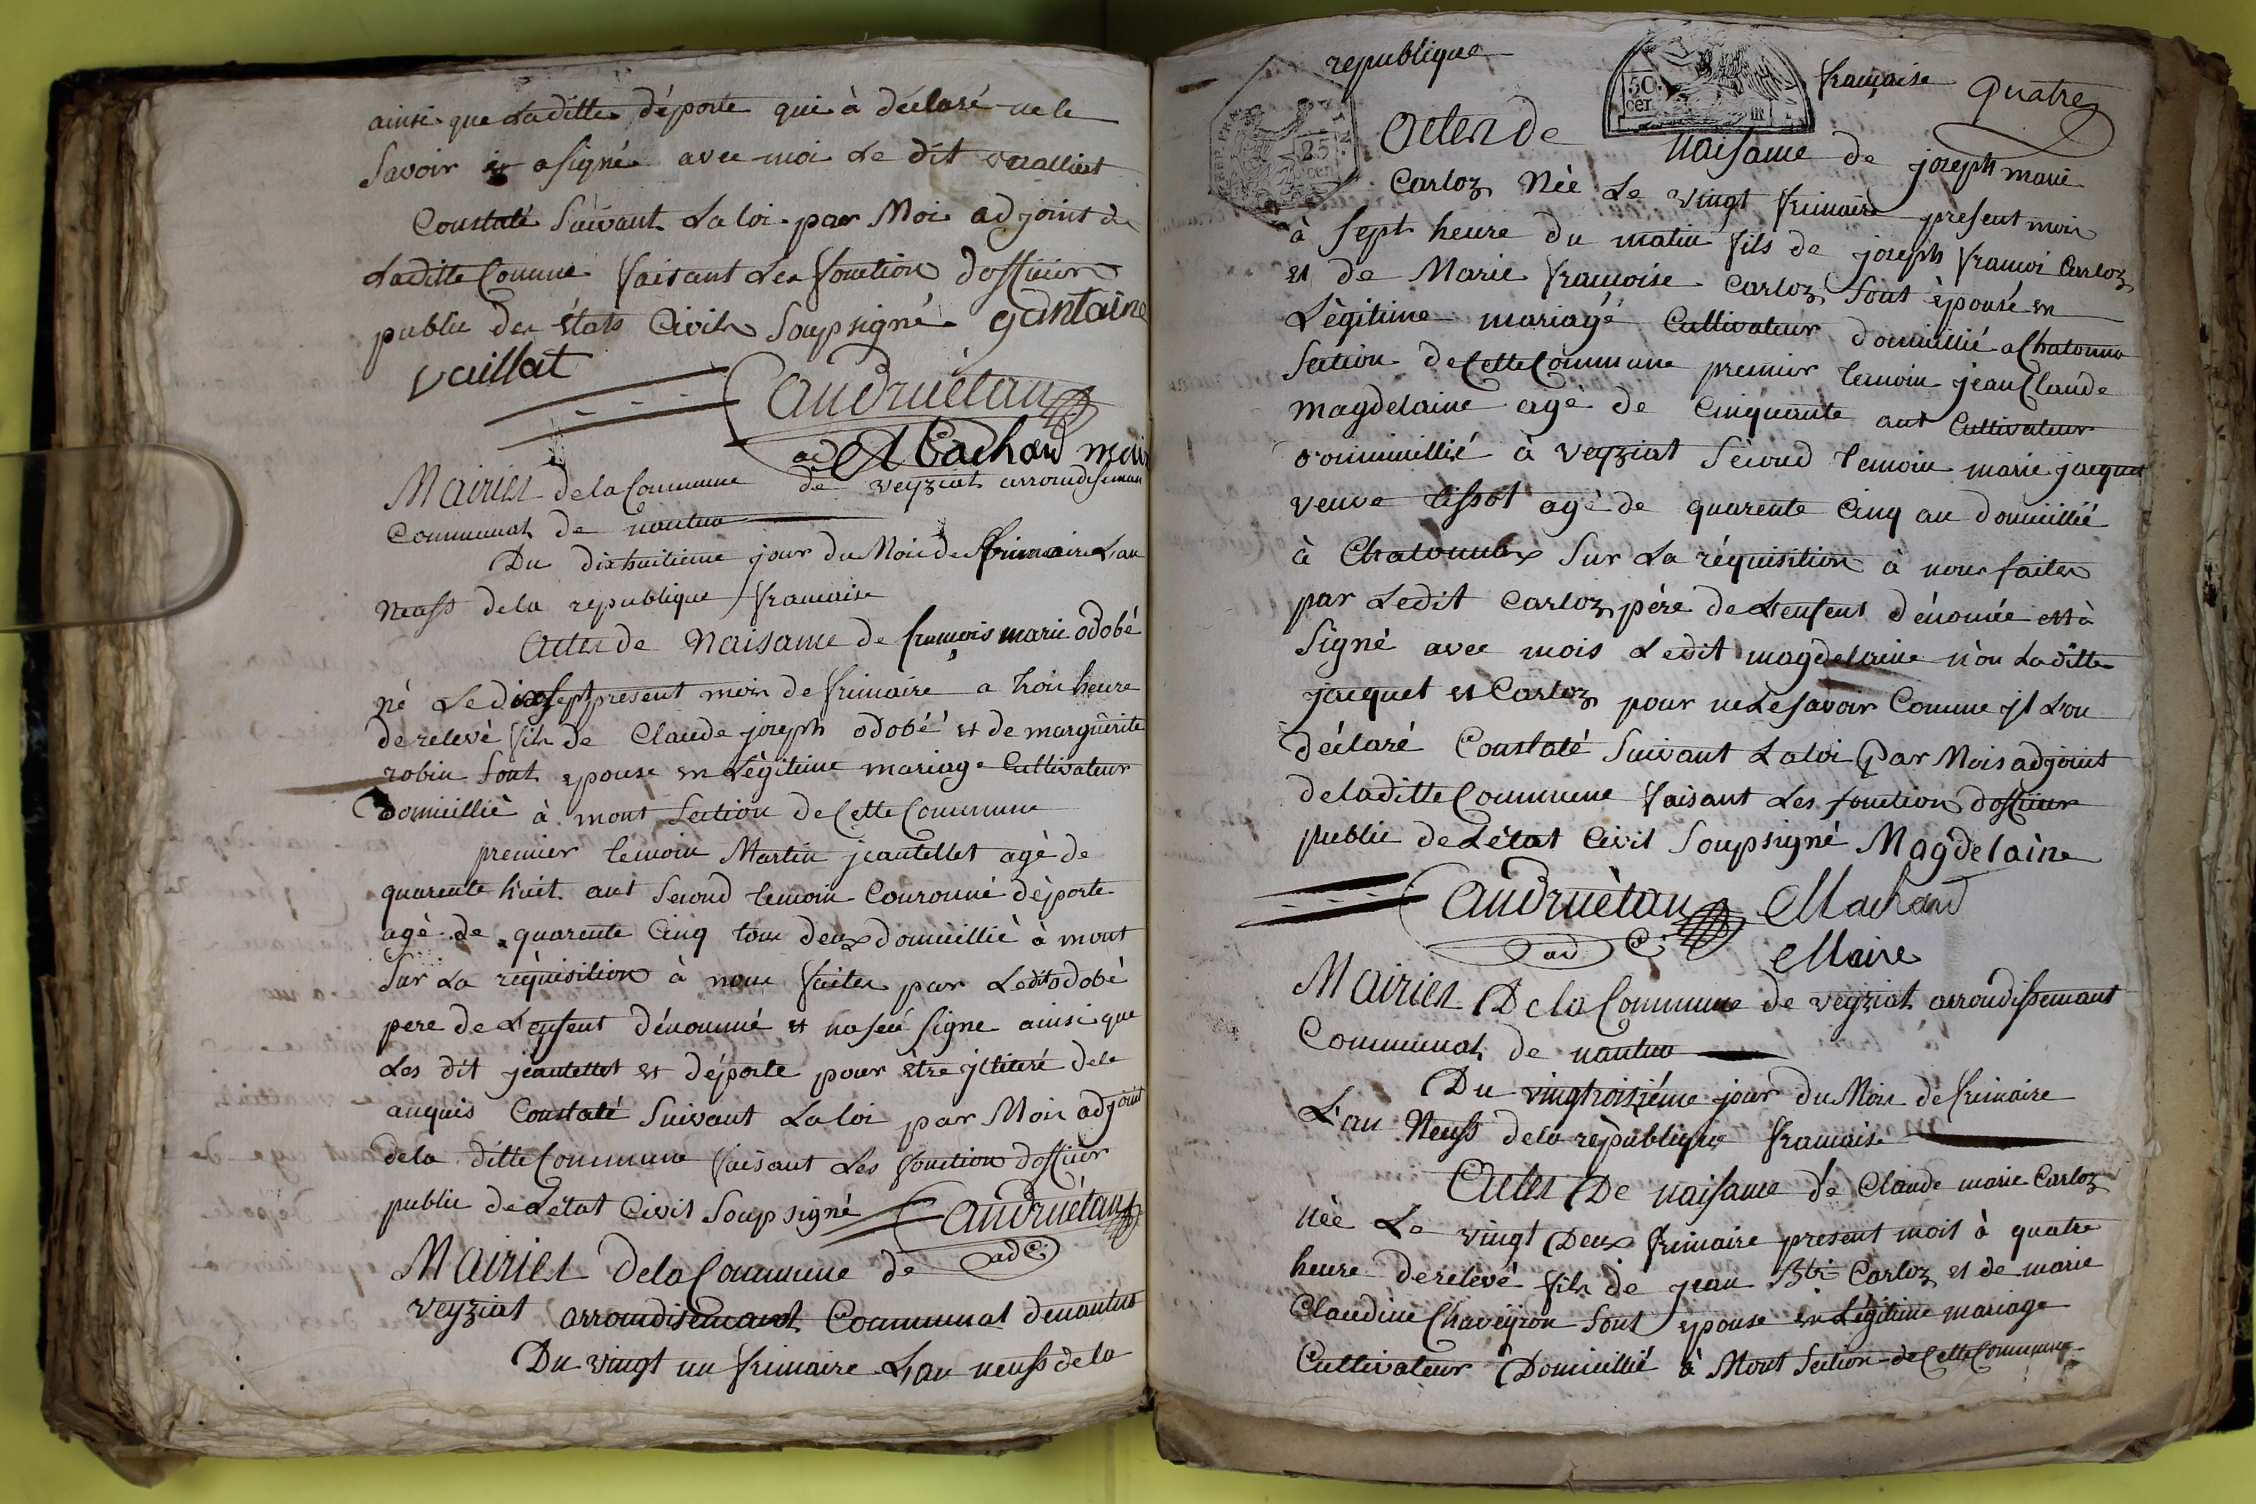 ainsi que Laditte déporte qui à déclaré ne le
Savoir et a signé avec moi Le dit vualliat
Constaté Suivant La loi par Moi adjoint de
Laditte Commune faisant Les fonction d'officier
public des états Civils Soupsigné gantaine
vaillat
andruétan
ad Machard maire
Mairies de la Commune de veyziat arrondiseman
Communal de nantua
Du dixhuitieme jour du Mois de frimaire L'an
Neuff de la republique francaise
Actes de Naisance de françois marie odobé
né Le dix sept present mois de frimaire a trois heure
de relevé fils de Claude joseph odobé et de margueritte
robin Sont epouse en Légitime mariage Cultivateur
Domicillié à mont Section de Cette Commune
premier temoin Martin jeantellet agé de
quarente huit ans Second temoin Couronné déporte
agé de quarente Cinq tous deux domicillié à mont
Sur La réquisition à nous faites par Ledit odobé
pere de L'enfent dénommé et na seu signe ainsi que
Les dit jeantellet et déporte pour être jlliteré de ce
anquis Constaté Suivant La loi par Mois adjoint
de la ditte Commune faisant Les fonction d'officier
public de L'état Civil Soupsigné andruétan
ad
Mairies de la Commune de
veyziat arrondisemant Communal de nantua
Du vingt un frimaire L'an neuff de la
republique francaise quatre
50 cer
25 cer
Actes de Naisance de joseph marie
Carloz Née Le vingt frimaire present mois
à Sept heure du matin fils de joseph francoi Carloz
et de Marie francoise Carloz Sont épousé en
Légitime mariagé Cultivateur domicillié a Chatonna
Section de Cette Commune premier temoin jean Claude
Magdelaine age de Cinquante ant Cultivateur
domimillié à veyziat Sécond temoin marie jacquet
veuve tissot agé de quarente Cinq an domicillié
à Chatonnax Sur La réquisition à nous faites
par Ledit Carloz pére de L'enfent dénomée et à
Signé avec mois Ledit magdelaine n'on Laditte
jacquet et Carloz pour ne Le Savoir Comme jl L'on
déclaré Constaté Suivant La loi par Mois adjoint
de laditte Commune faisant Les fonction d'officier
public de L'état Civil Soupsigné Magdelaine
andruétan Machard
ad Maire
Mairies De la Commune de veyziat arrondissemant
Communal de nantua
Du vingtroisiéme jour du Mois de frimaire
L'an Neuff de la républiqu francaise
Actes De naisance de Claude marie Carloz
Née Le vingt Deux frimaire present mois à quatre
heure de relevé fils de jean Bte Carloz et de marie
Claudine Chaveyron Sont epouse en Légitime mariage
Cultivateur Domicillié à Mont Section de Cette Commune